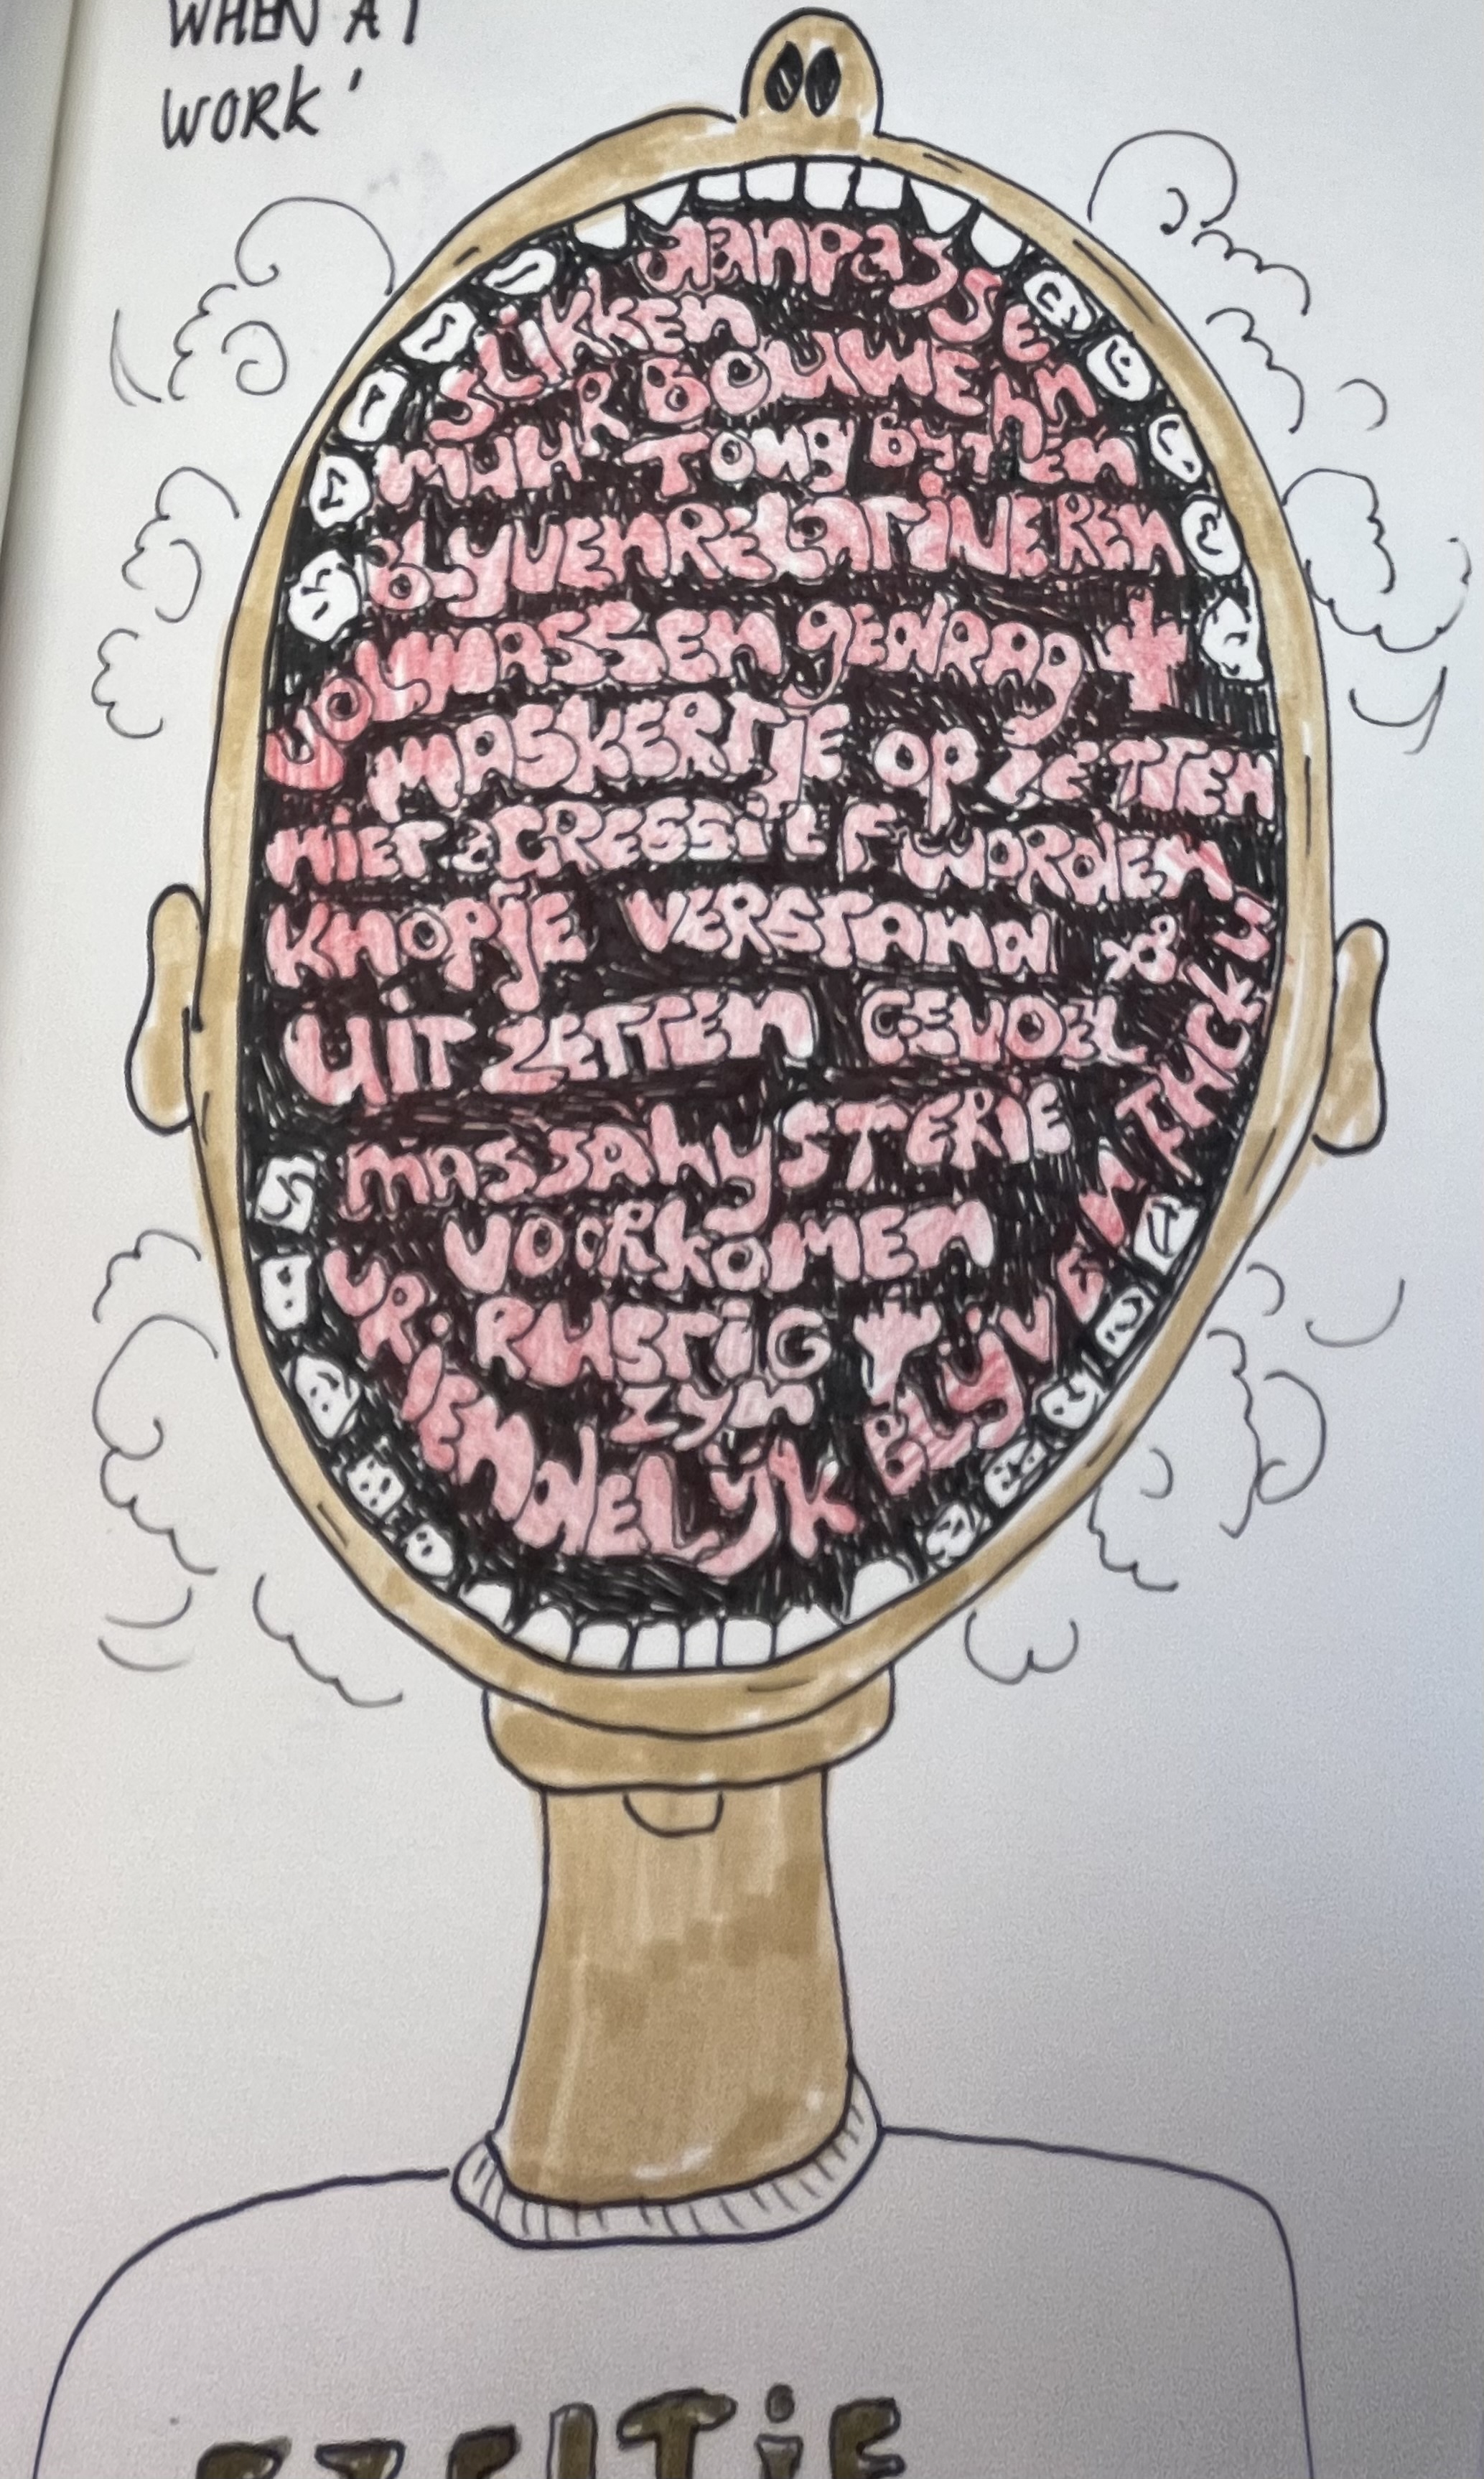 WHEN AT
WORK'
aanpassen
SLIKKEN
MUHR BOUWEhn
TONG BYTEN
BLYVEN RELATIVEREN
VOLWASSEN gedrag
MASKERTJE OP ZETTEN
NIET aGRESSIEF WORDEN
KNOPJE VERSTAND
UIT ZETTEN GEVOEL
MASSAHySTERIE
VOORKOMEN
RUSTIG
ZYN
VR.IENDELijk BLijVEN
EZELTJE